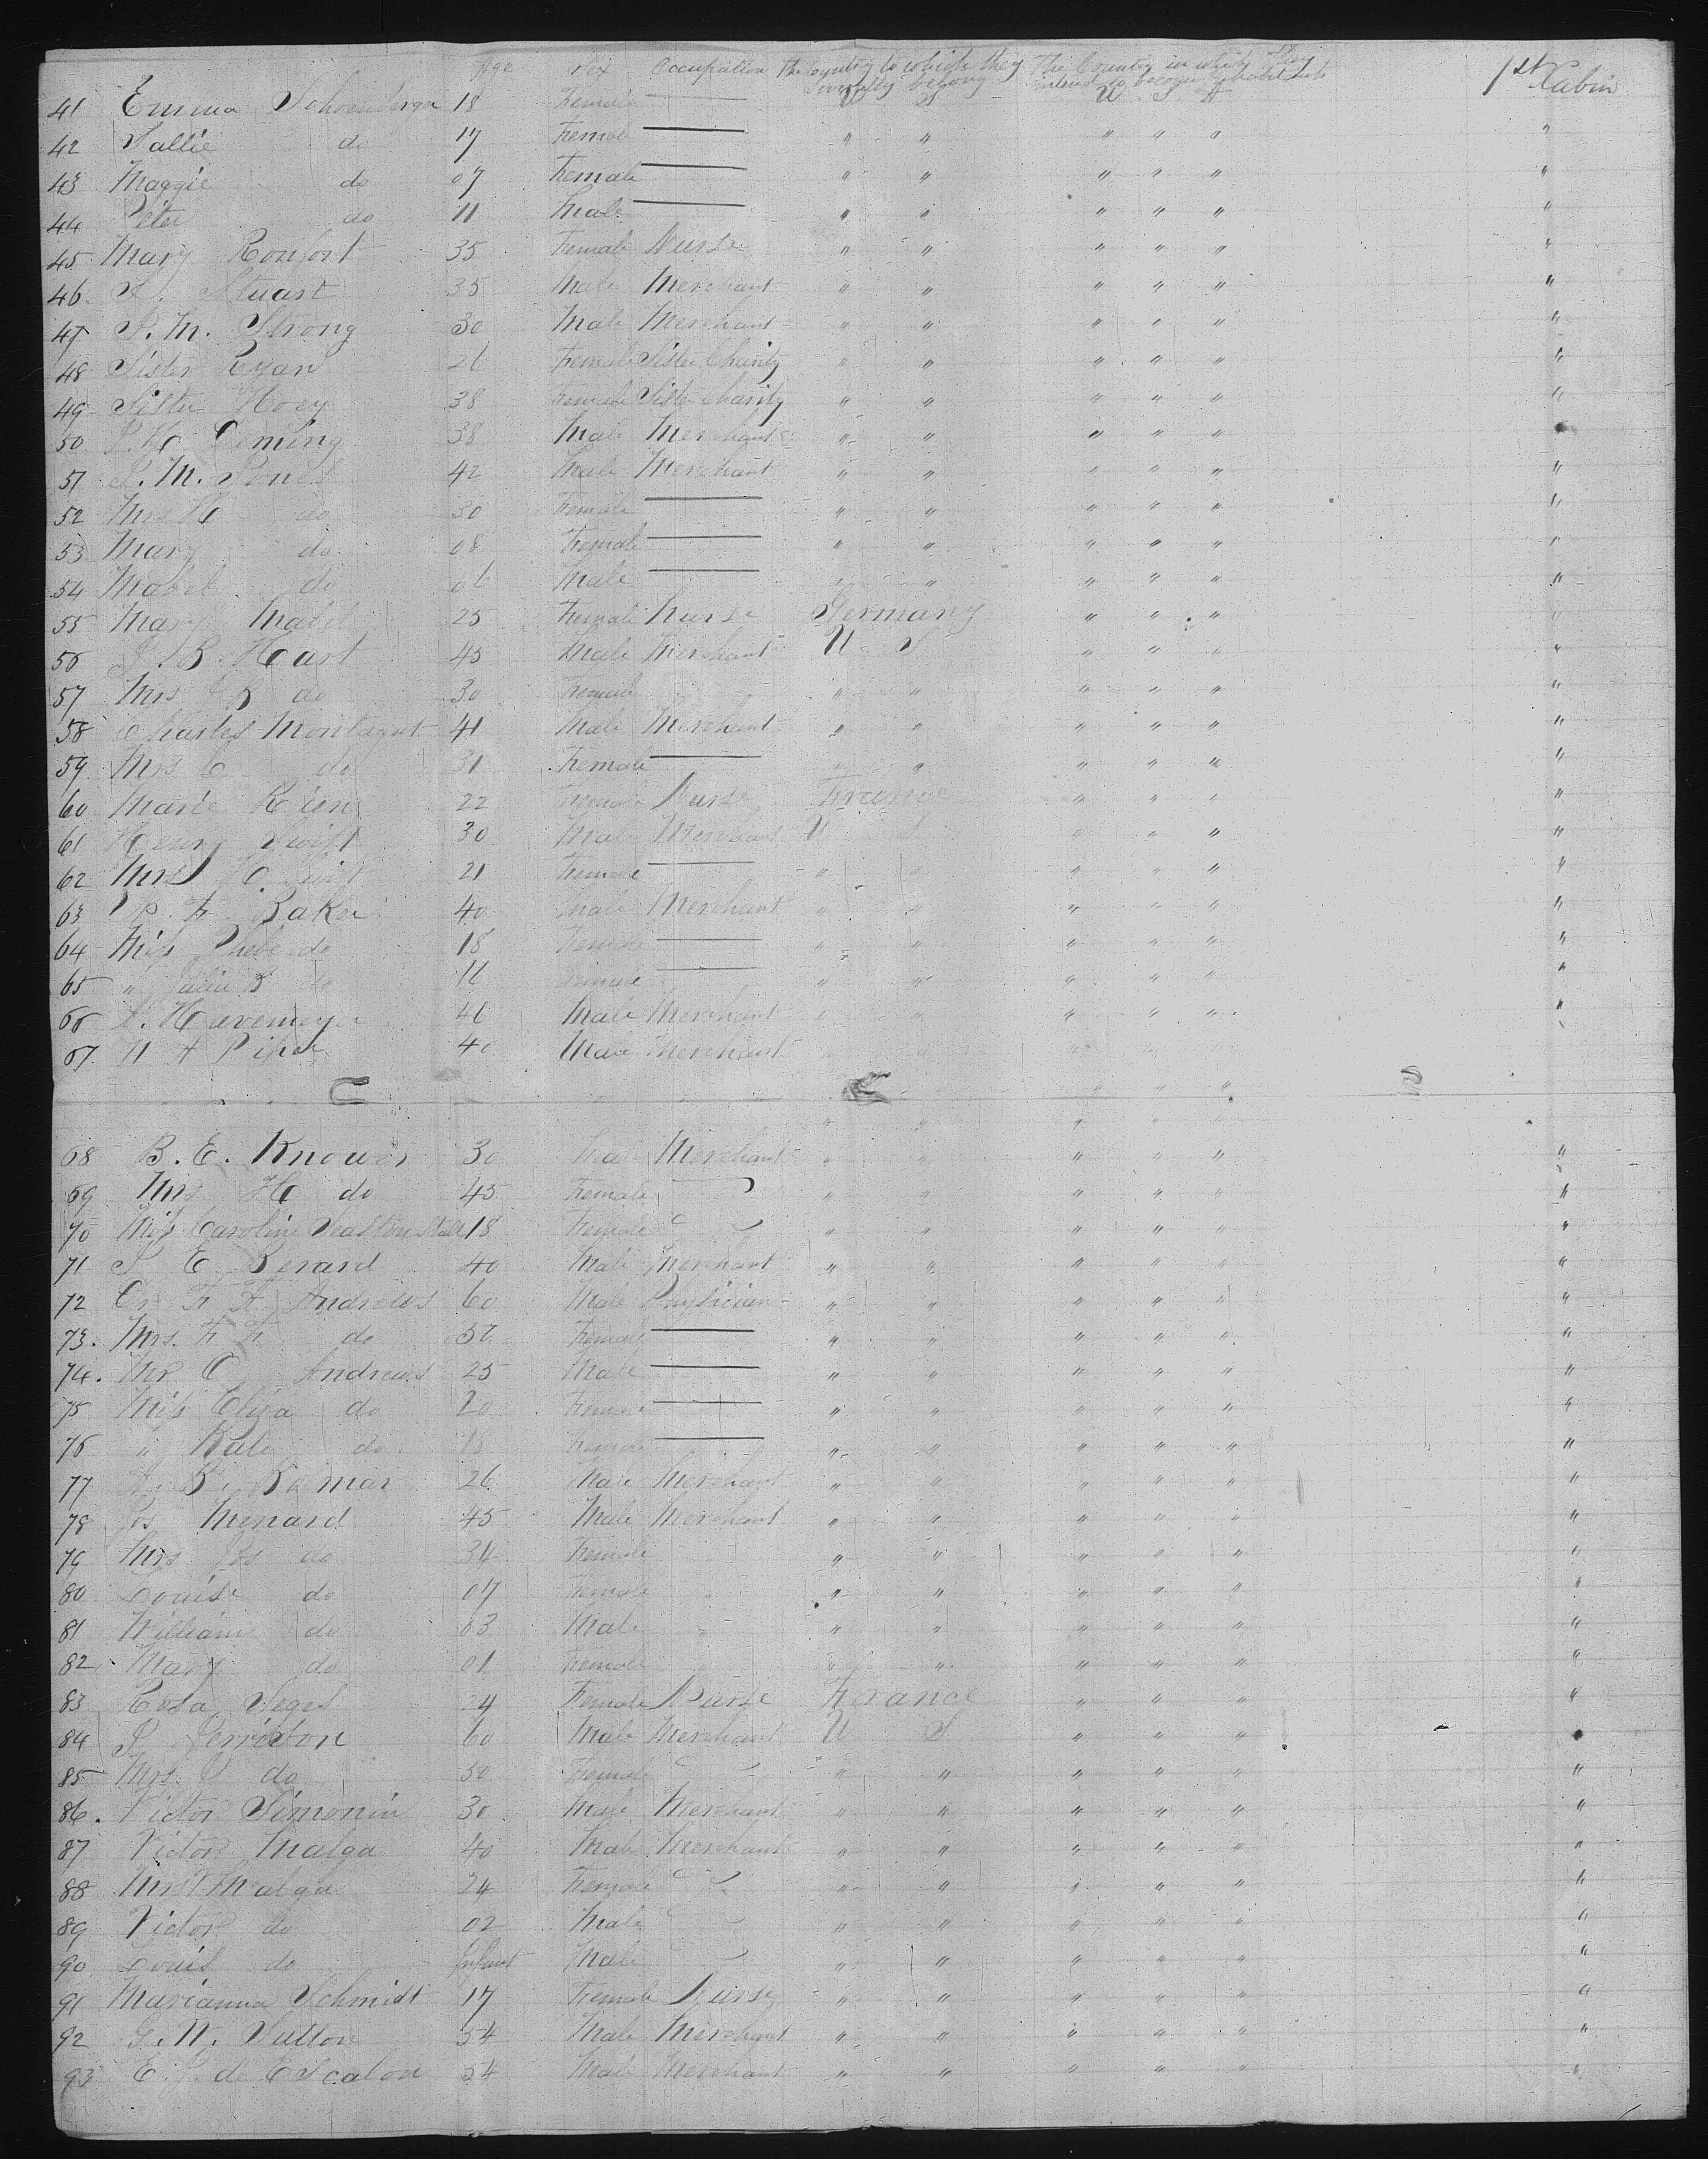 Age Sex Occupation The Country to which they severally belong The Country in which they intend to become inhabitants 1st Cabin
41 Emma Schoenberger 18 Female — U S U S A
42 Sallie do 17 Female — " " " " " "
43 Maggie do 07 Female — " " " " " "
44 Peter do 11 Male — " " " " " "
45 Mary Ronfort 35 Female Nurse " " " " " "
46. A. Stuart 35 Male Merchant " " " " " "
47 S. M. Strong 30 Male Merchant " " " " " "
48 Sister Ryan 26 Female Sister Charity " " " " " "
49 Sister Hoey 38 Female Siste Charity " " " " " "
50 P. H. Deming 38 Male Merchant " " " " " "
51 S. M. Pones 42 Male Merchant " " " " " "
52 Mrs H do 30 Female — " " " " " "
53 Mary do 08 Female — " " " " " "
54 Mabel do 06 Male — " " " " " "
55 Mary Madel 25 Female Nurse Germany " " " "
56 J. B. Hart 45 Male Merchant U S " " " "
57 Mrs J B do 30 Female " " " " " "
58 Charles Montagut 41 Male Merchant " " " " " "
59 Mrs C do 31 Female — " " " " " "
60 Marie Rien 22 Female Nurse France " " " "
61 Henry Swift 30 Male Merchant U " " " "
62 Mrs H. Swift 21 Female — " " " " " "
63 P. F. Baker 40 Male Merchant " " " " " "
64 Miss Phebe do 18 Female — " " " " " "
65 " Julia B do 16 Female — " " " " " "
66 A. Havemeyer 46 Male Merchant " " " " " "
67. N A Piper 40 Male Merchant " " " " "
68 B. E. Knower 30 Male Merchant " " " " " "
69 Mrs H do 45 Female " " " " " "
70 Miss Caroline 18 Female " " " " " "
71 S E Berard 40 Male Merchant " " " " " "
72 Dr F F Andrews 60 Male Physician " " " " " "
73. Mrs. F F do 56 Female — " " " " " "
74. Mr C Andrews 25 Male — " " " " " "
75 Miss Eliza do 20 Female — " " " " " "
76 " Kate do 18 Female — " " " " " "
77 A. B. Bomar 26 Male Merchant " " " " " "
78 Jos Menard 45 Male Merchant " " " " " "
79 Mrs Jos do 34 Female " " " " " "
80 Louise do 07 Female " " " " " "
81 William do 03 Male " " " " " "
82 Mary do 01 Female " " " " " "
83 Rosa Seges 24 Female Nurse France " " " "
84 S Jerriston 60 Male Merchant U S " " " "
85 Mrs S do 50 Female " " " " " "
86. Victor Simonin 30 Male Merchant " " " " " "
87 Victor Malga 40 Male Merchant " " " " " "
88 Mrs V Malga 24 Female " " " " " "
89 Victor do 02 Male " " " " " "
90 Louis do Infant Male " " " " " "
91 Marianna Schmidt 17 Female Nurse " " " " " "
92 G. W. Sutton 54 Male Merchant " " " " " "
93 E. J. de Escalon 54 Male Merchant " " " " " "